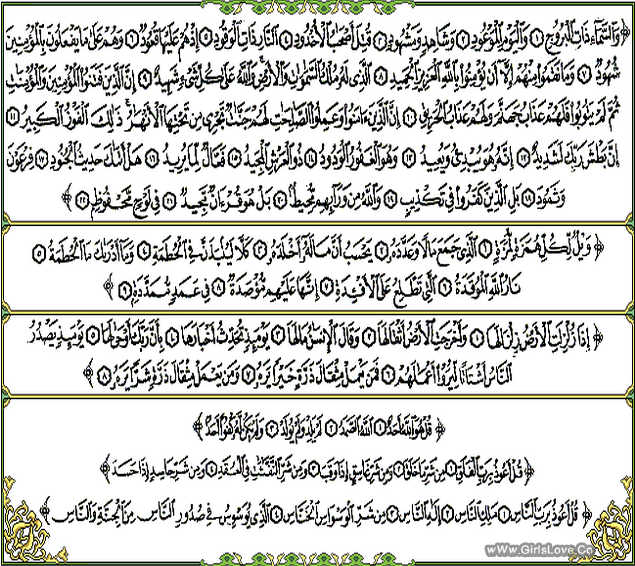 ﴿ وَالسَّمَاءِ ذَاتِ الْبُرُوجِ ۝١ وَالْيَوْمِ الْمَوْعُودِ ۝٢ وَشَاهِدٍ وَمَشْهُودٍ ۝٣ قُتِلَ أَصْحَابُ الْأُخْدُودِ ۝٤ النَّارِ ذَاتِ الْوَقُودِ ۝٥ إِذْ هُمْ عَلَيْهَا قُعُودٌ ۝٦ وَهُمْ عَلَى مَا يَفْعَلُونَ بِالْمُؤْمِنِينَ
شُهُودٌ ۝٧ وَمَا نَقَمُوا مِنْهُمْ إِلَّا أَن يُؤْمِنُوا بِاللَّهِ الْعَزِيزِ الْحَمِيدِ ۝٨ الَّذِي لَهُ مُلْكُ السَّمَٰوَاتِ وَالْأَرْضِ وَاللَّهُ عَلَى كُلِّ شَيْءٍ شَهِيدٌ ۝٩ إِنَّ الَّذِينَ فَتَنُوا الْمُؤْمِنِينَ وَالْمُؤْمِنَاتِ
ثُمَّ لَمْ يَتُوبُوا فَلَهُمْ عَذَابُ جَهَنَّمَ وَلَهُمْ عَذَابُ الْحَرِيقِ ۝١٠ إِنَّ الَّذِينَ ءَامَنُوا وَعَمِلُوا الصَّالِحَاتِ لَهُمْ جَنَّاتٌ تَجْرِي مِن تَحْتِهَا الْأَنْهَارُ ذَٰلِكَ الْفَوْزُ الْكَبِيرُ ۝١١
إِنَّ بَطْشَ رَبِّكَ لَشَدِيدٌ ۝١٢ إِنَّهُ هُوَ يُبْدِئُ وَيُعِيدُ ۝١٣ وَهُوَ الْغَفُورُ الْوَدُودُ ۝١٤ ذُو الْعَرْشِ الْمَجِيدُ ۝١٥ فَعَّالٌ لِّمَا يُرِيدُ ۝١٦ هَلْ أَتَاكَ حَدِيثُ الْجُنُودِ ۝١٧ فِرْعَوْنَ
وَثَمُودَ ۝١٨ بَلِ الَّذِينَ كَفَرُوا فِي تَكْذِيبٍ ۝١٩ وَاللَّهُ مِن وَرَائِهِم مُّحِيطٌ ۝٢٠ بَلْ هُوَ قُرْءَانٌ مَّجِيدٌ ۝٢١ فِي لَوْحٍ مَّحْفُوظٍ ۝٢٢ ﴾
﴿ وَيْلٌ لِّكُلِّ هُمَزَةٍ لُّمَزَةٍ ۝١ الَّذِي جَمَعَ مَالًا وَعَدَّدَهُ ۝٢ يَحْسَبُ أَنَّ مَالَهُ أَخْلَدَهُ ۝٣ كَلَّا لَيُنبَذَنَّ فِي الْحُطَمَةِ ۝٤ وَمَا أَدْرَاكَ مَا الْحُطَمَةُ ۝٥
نَارُ اللَّهِ الْمُوقَدَةُ ۝٦ الَّتِي تَطَّلِعُ عَلَى الْأَفْئِدَةِ ۝٧ إِنَّهَا عَلَيْهِم مُّؤْصَدَةٌ ۝٨ فِي عَمَدٍ مُّمَدَّدَةٍ ۝٩ ﴾
﴿ إِذَا زُلْزِلَتِ الْأَرْضُ زِلْزَالَهَا ۝١ وَأَخْرَجَتِ الْأَرْضُ أَثْقَالَهَا ۝٢ وَقَالَ الْإِنسَانُ مَا لَهَا ۝٣ يَوْمَئِذٍ تُحَدِّثُ أَخْبَارَهَا ۝٤ بِأَنَّ رَبَّكَ أَوْحَىٰ لَهَا ۝٥ يَوْمَئِذٍ يَصْدُرُ
النَّاسُ أَشْتَاتًا لِّيُرَوْا أَعْمَالَهُمْ ۝٦ فَمَن يَعْمَلْ مِثْقَالَ ذَرَّةٍ خَيْرًا يَرَهُ ۝٧ وَمَن يَعْمَلْ مِثْقَالَ ذَرَّةٍ شَرًّا يَرَهُ ۝٨ ﴾
﴿ قُلْ هُوَ اللَّهُ أَحَدٌ ۝١ اللَّهُ الصَّمَدُ ۝٢ لَمْ يَلِدْ وَلَمْ يُولَدْ ۝٣ وَلَمْ يَكُن لَّهُ كُفُوًا أَحَدٌ ﴾
﴿ قُلْ أَعُوذُ بِرَبِّ الْفَلَقِ ۝١ مِن شَرِّ مَا خَلَقَ ۝٢ وَمِن شَرِّ غَاسِقٍ إِذَا وَقَبَ ۝٣ وَمِن شَرِّ النَّفَّاثَاتِ فِي الْعُقَدِ ۝٤ وَمِن شَرِّ حَاسِدٍ إِذَا حَسَدَ ﴾
﴿ قُلْ أَعُوذُ بِرَبِّ النَّاسِ ۝١ مَلِكِ النَّاسِ ۝٢ إِلَٰهِ النَّاسِ ۝٣ مِن شَرِّ الْوَسْوَاسِ الْخَنَّاسِ ۝٤ الَّذِي يُوَسْوِسُ فِي صُدُورِ النَّاسِ مِنَ الْجِنَّةِ وَالنَّاسِ ﴾
www.GirlsLove.Co